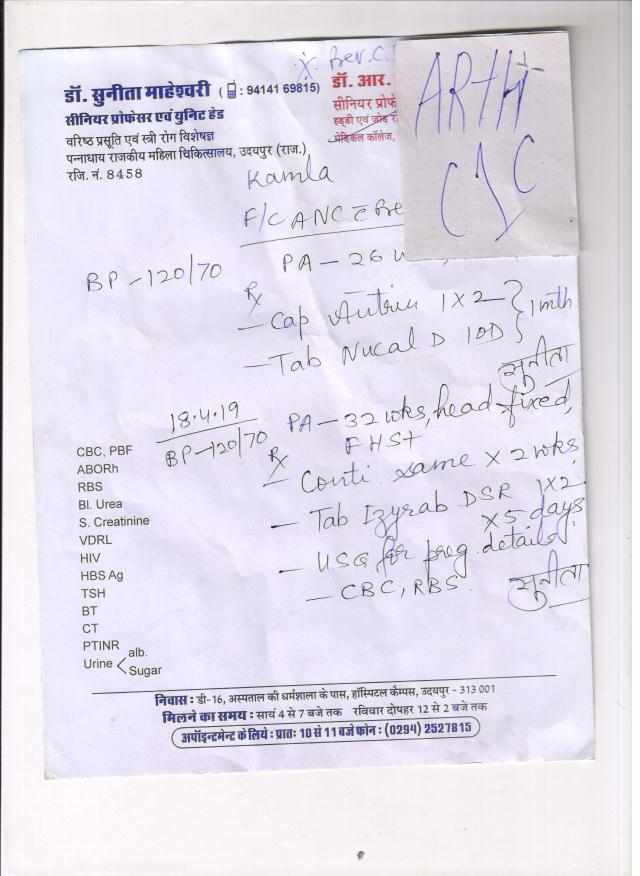 Rev. C.
डॉ. सुनीता माहेश्वरी ( : 94141 69815)
सीनियर प्रोफेसर एवं युनिट हेड
वरिष्ठ प्रसूति एवं स्त्री रोग विशेषज्ञ
पन्नाधाय राजकीय महिला चिकित्सालय, उदयपुर (राज.)
रजि. नं. 8458
डॉ. आर.
सीनियर प्रोफे
हड्डी एवं जोड़
मेडिकल कॉलेज,
ARTH
CSC
Kamla
F/C ANC c Bre
BP - 120/70
PA - 26 w
Rx
- Cap 1 X 2 } 1 mth
- Tab Nucal D 1OD
सुनीता
18.4.19
BP - 120/70
PA - 32 wks, head fixed,
FHS+
Rx
- Conti. same X 2 wks
- Tab Izyrab DSR 1X2
X 5 days
- USG for preg. details
- CBC, RBS.
सुनीता
CBC, PBF
ABORh
RBS
Bl. Urea
S. Creatinine
VDRL
HIV
HBS Ag
TSH
BT
CT
PTINR
Urine < alb.
Sugar
निवास : डी-16, अस्पताल की धर्मशाला के पास, हॉस्पिटल कैम्पस, उदयपुर - 313 001
मिलने का समय : सायं 4 से 7 बजे तक रविवार दोपहर 12 से 2 बजे तक
अपॉइन्टमेन्ट के लिये : प्रातः 10 से 11 बजे फोन : (0294) 2527815